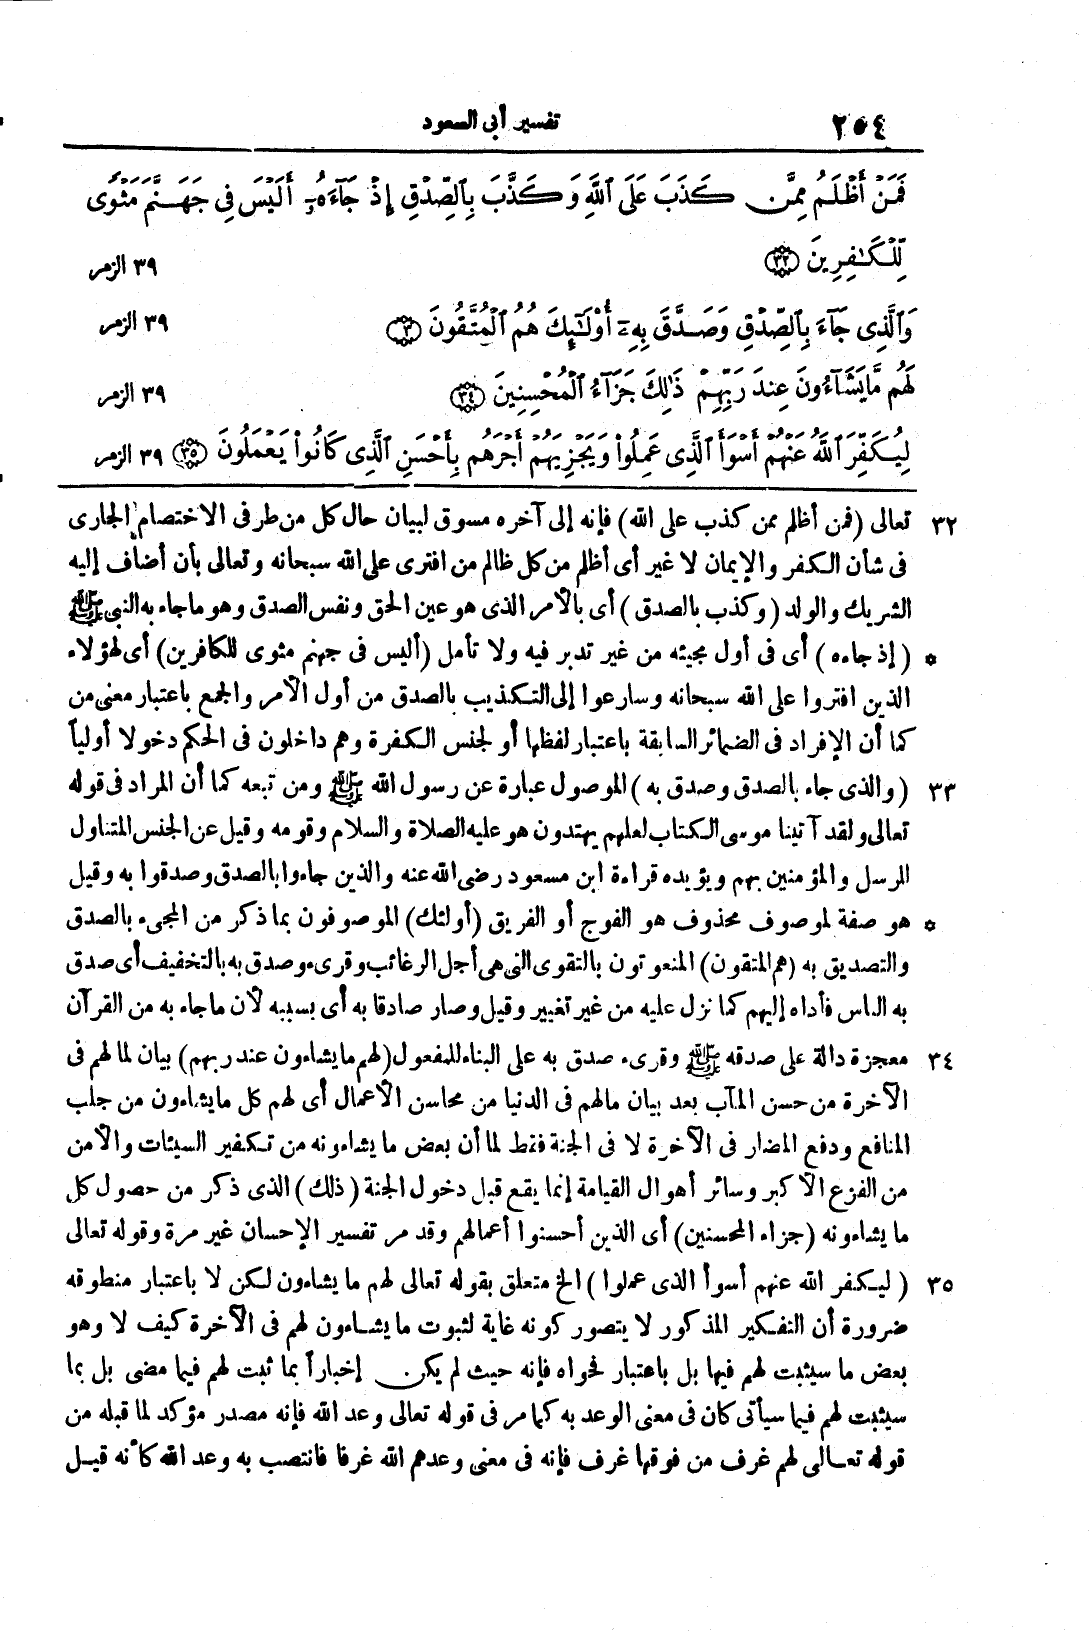 ٢٥٤ تفسير أبى السعود
فَمَنْ أَظْلَمُ مِمَّن كَذَبَ عَلَى ٱللَّهِ وَكَذَّبَ بِٱلصِّدْقِ إِذْ جَآءَهُۥٓ أَلَيْسَ فِى جَهَنَّمَ مَثْوًى
لِّلْكَٰفِرِينَ ٣٢ ٣٩ الزمر
وَٱلَّذِى جَآءَ بِٱلصِّدْقِ وَصَدَّقَ بِهِۦٓ أُو۟لَٰٓئِكَ هُمُ ٱلْمُتَّقُونَ ٣٣ ٣٩ الزمر
لَهُم مَّا يَشَآءُونَ عِندَ رَبِّهِمْ ذَٰلِكَ جَزَآءُ ٱلْمُحْسِنِينَ ٣٤ ٣٩ الزمر
لِيُكَفِّرَ ٱللَّهُ عَنْهُمْ أَسْوَأَ ٱلَّذِى عَمِلُوا۟ وَيَجْزِيَهُمْ أَجْرَهُم بِأَحْسَنِ ٱلَّذِى كَانُوا۟ يَعْمَلُونَ ٣٥ ٣٩ الزمر
٣٢ تعالى (فمن أظلم ممن كذب على الله) فإنه إلى آخره مسوق لبيان حال كل من طرفى الاختصام الجارى
فى شأن الكفر والإيمان لا غير أى أظلم من كل ظالم من افترى على الله سبحانه وتعالى بأن أضاف إليه
الشريك والولد (وكذب بالصدق) أى بالأمر الذى هو عين الحق ونفس الصدق وهو ما جاء به النبى ﷺ
* (إذ جاءه) أى فى أول مجيئه من غير تدبر فيه ولا تأمل (أليس فى جهنم مثوى للكافرين) أى لهؤلاء
الذين افتروا على الله سبحانه وسارعوا إلى التكذيب بالصدق من أول الأمر والجمع باعتبار معنى من
كما أن الإفراد فى الضمائر السابقة باعتبار لفظها أو لجنس الكفرة وهم داخلون فى الحكم دخولا أولياً
٣٣ (والذى جاء بالصدق وصدق به) الموصول عبارة عن رسول الله ﷺ ومن تبعه كما أن المراد فى قوله
تعالى ولقد آتينا موسى الكتاب لعلهم يهتدون هو عليه الصلاة والسلام وقومه وقيل عن الجنس المتناول
للرسل والمؤمنين بهم ويؤيده قراءة ابن مسعود رضى الله عنه والذين جاءوا بالصدق وصدقوا به وقيل
* هو صفة لموصوف محذوف هو الفوج أو الفريق (أولئك) الموصوفون بما ذكر من المجىء بالصدق
والتصديق به (هم المتقون) المنعوتون بالتقوى التى هى أجل الرغائب وقرىء وصدق به بالتخفيف أى صدق
به الناس فأداه إليهم كما نزل عليه من غير تغيير وقيل وصار صادقا به أى بسببه لأن ما جاء به من القرآن
٣٤ معجزة دالة على صدقه ﷺ وقرىء صدق به على البناء للمفعول (لهم ما يشاءون عند ربهم) بيان لما لهم فى
الآخرة من حسن المآب بعد بيان مالهم فى الدنيا من محاسن الأعمال أى لهم كل ما يشاءون من جلب
المنافع ودفع المضار فى الآخرة لا فى الجنة فقط لما أن بعض ما يشاءونه من تكفير السيئات والأمن
من الفزع الأكبر وسائر أهوال القيامة إنما يقع قبل دخول الجنة (ذلك) الذى ذكر من حصول كل
ما يشاءونه (جزاء المحسنين) أى الذين أحسنوا أعمالهم وقد مر تفسير الإحسان غير مرة وقوله تعالى
٣٥ (ليكفر الله عنهم أسوأ الذى عملوا) الخ متعلق بقوله تعالى لهم ما يشاءون لكن لا باعتبار منطوقه
ضرورة أن التفكير المذكور لا يتصور كونه غاية لثبوت ما يشاءون لهم فى الآخرة كيف لا وهو
بعض ما سيثبت لهم فيها بل باعتبار فحواه فإنه حيث لم يكن إخباراً بما ثبت لهم فيما مضى بل بما
سيثبت لهم فيما سيأتى كان فى معنى الوعد به كما مر فى قوله تعالى وعد الله فإنه مصدر مؤكد لما قبله من
قوله تعالى لهم غرف من فوقها غرف فإنه فى معنى وعدهم الله غرفا فانتصب به وعد الله كأنه قيل